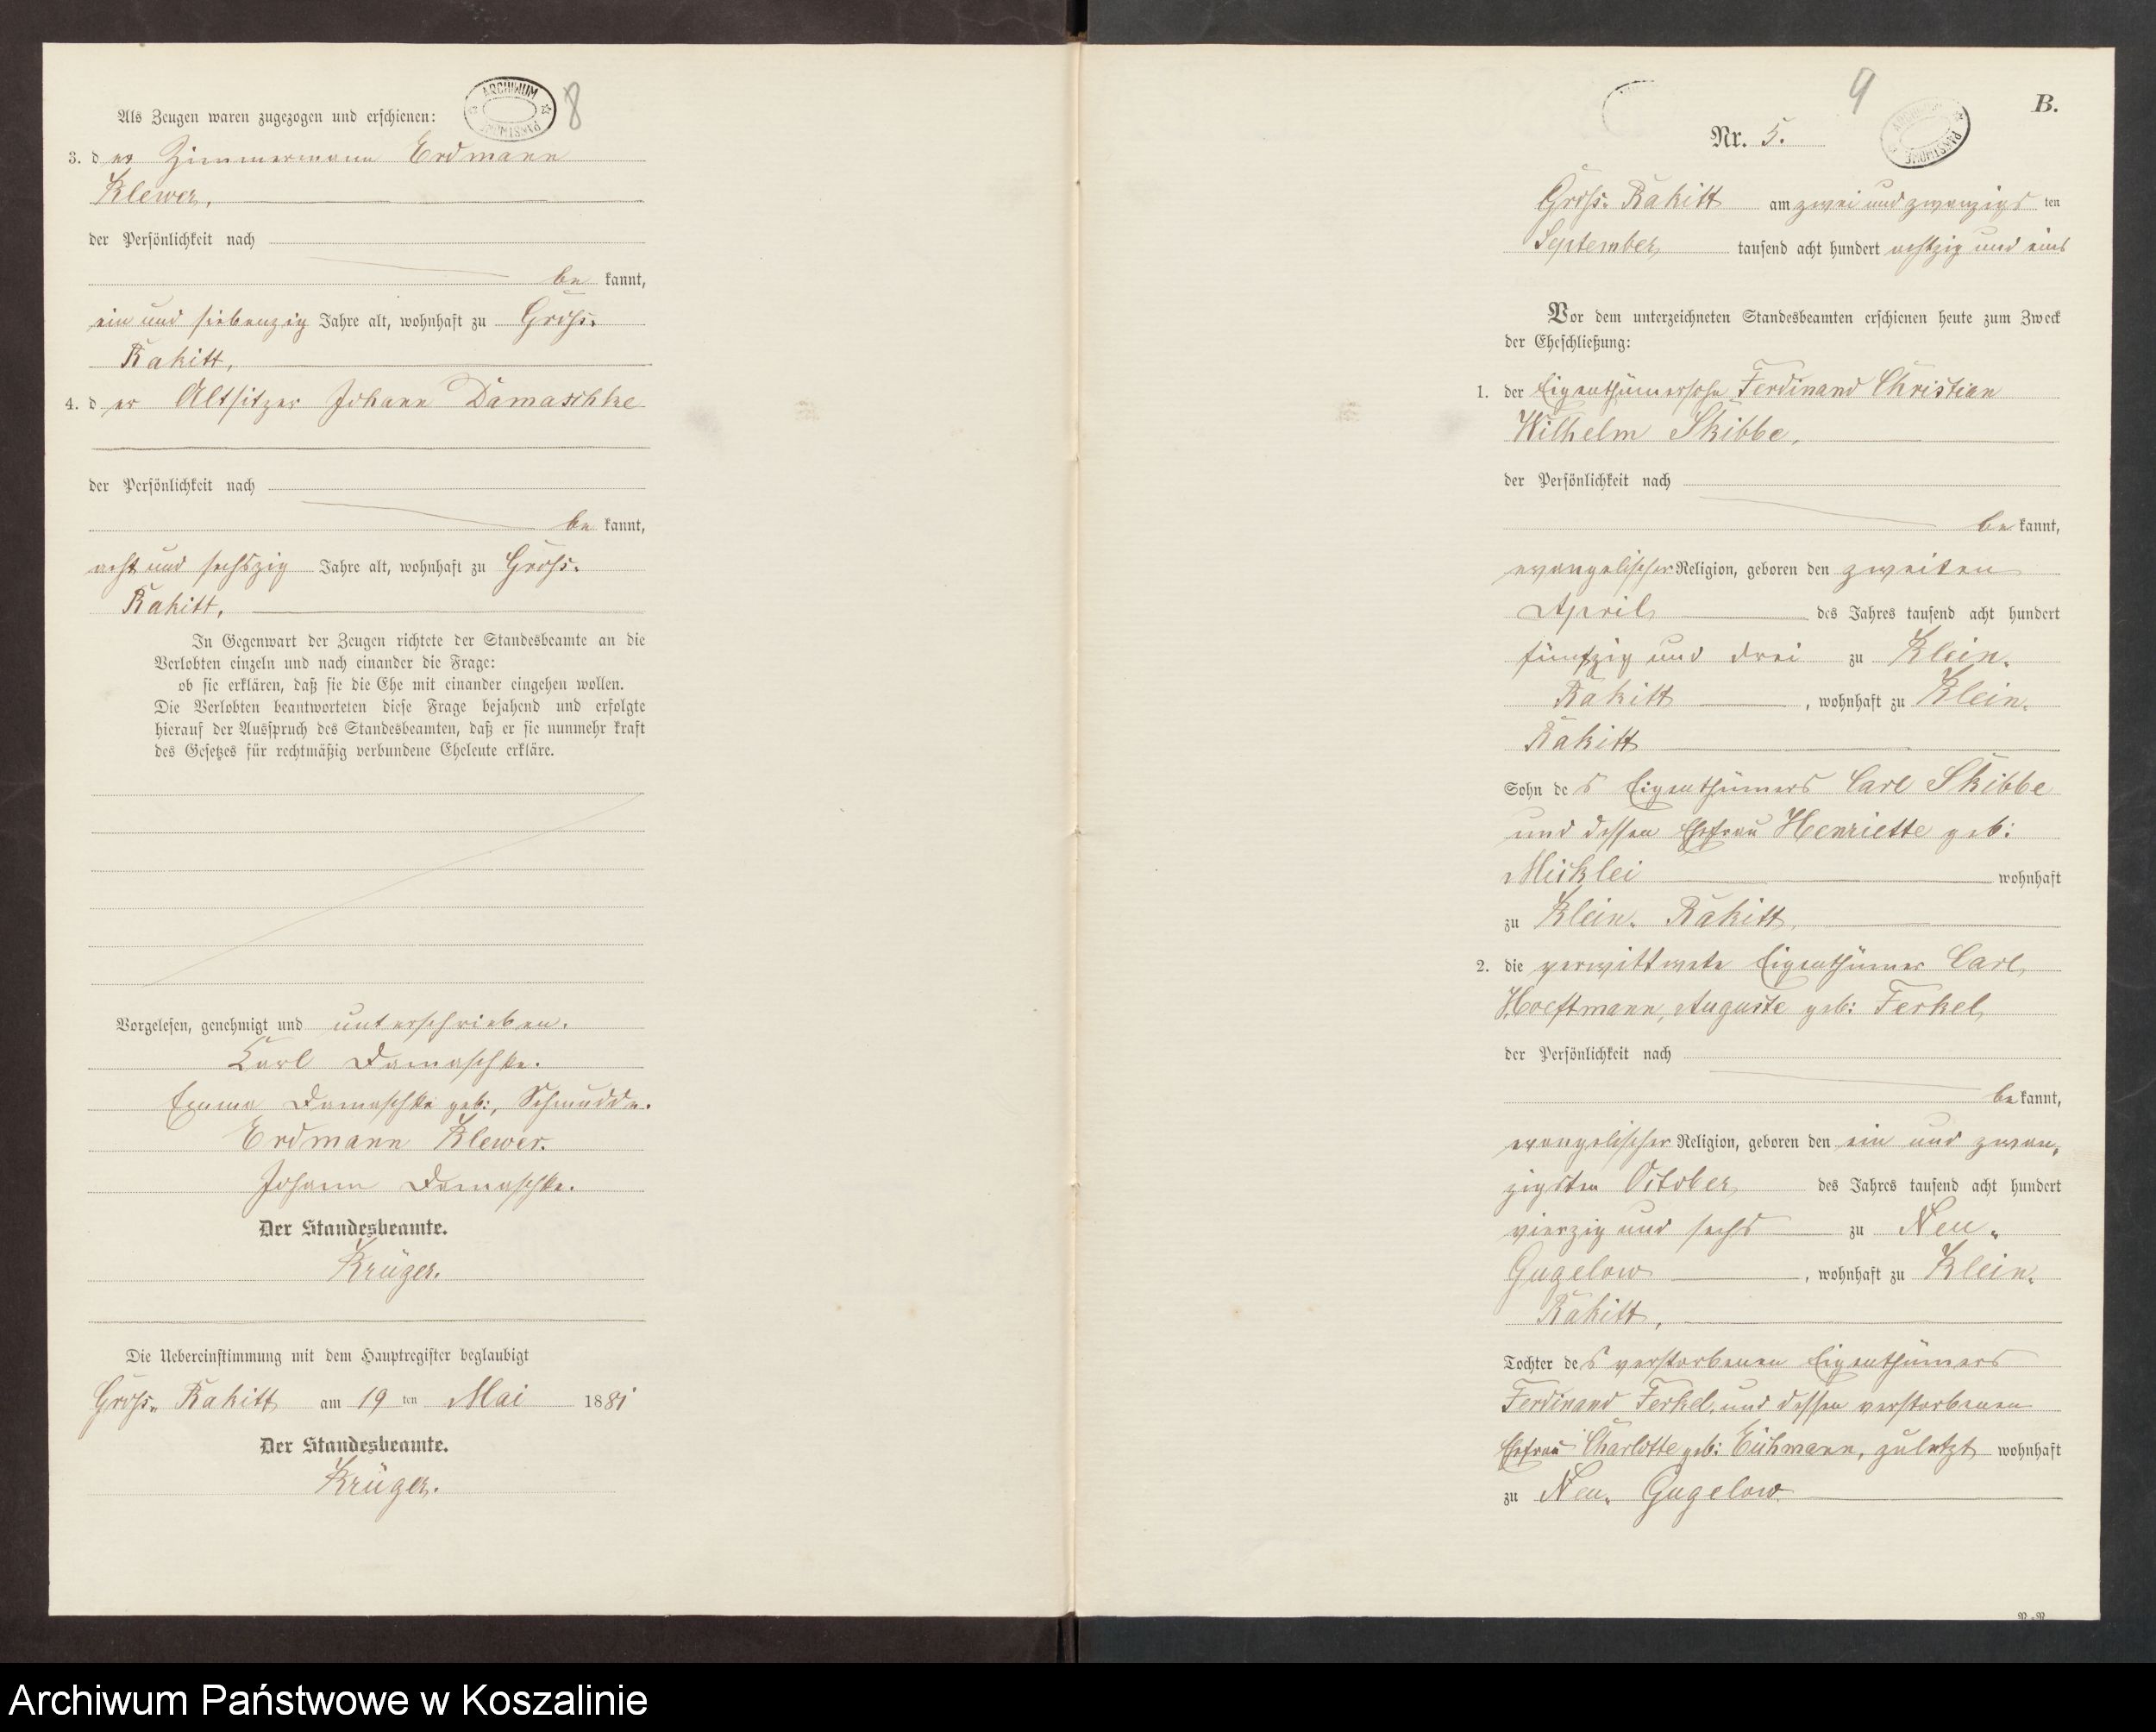 ARCHIWUM PAŃSTWOWE
8
Als Zeugen waren zugezogen und erschienen:
3. der Zimmermann Erdmann
Klewer,
der Persönlichkeit nach
be kannt,
ein und siebenzig Jahre alt, wohnhaft zu Groß-
Rakitt,
4. der Altsitzer Johann Damaschke
der Persönlichkeit nach
be kannt,
acht und sechszig Jahre alt, wohnhaft zu Groß-
Rakitt,
In Gegenwart der Zeugen richtete der Standesbeamte an die
Verlobten einzeln und nach einander die Frage:
ob sie erklären, daß sie die Ehe mit einander eingehen wollen.
Die Verlobten beantworteten diese Frage bejahend und erfolgte
hierauf der Ausspruch des Standesbeamten, daß er sie nunmehr kraft
des Gesetzes für rechtmäßig verbundene Eheleute erkläre.
Vorgelesen, genehmigt und unterschrieben.
Karl Damaschke.
Emma Damaschke geb: Schmudde.
Erdmann Klewer.
Johann Damaschke.
Der Standesbeamte.
Krüger.
Die Uebereinstimmung mit dem Hauptregister beglaubigt
Groß- Rakitt am 19 ten Mai 1881
Der Standesbeamte.
Krüger.
9
B.
Nr. 5.
Groß- Rakitt am zwei und zwanzigs ten
September tausend acht hundert achtzig und eins
Vor dem unterzeichneten Standesbeamten erschienen heute zum Zweck
der Eheschließung:
1. der Eigenthümersohn Ferdinand Christian
Wilhelm Skibbe,
der Persönlichkeit nach
be kannt,
evangelischer Religion, geboren den zweiten
April des Jahres tausend acht hundert
fünfzig und drei zu Klein-
Rakitt, wohnhaft zu Klein-
Rakitt
Sohn des Eigenthümers Carl Skibbe
und dessen Ehefrau Henriette geb:
wohnhaft
zu Klein- Rakitt,
2. die verwittwete Eigenthümer Carl
Hoeftmann, Auguste geb: Ferkel,
der Persönlichkeit nach
be kannt,
evangelischer Religion, geboren den ein und zwan-
zigsten October des Jahres tausend acht hundert
vierzig und sechs zu Neu-
Gugelow, wohnhaft zu Klein-
Rakitt,
Tochter des verstorbenen Eigenthümers
Ferdinand Ferkel, und dessen verstorbenen
Ehefrau Charlotte geb: zuletzt wohnhaft
zu Neu- Gugelow
Archiwum Państwowe w Koszalinie